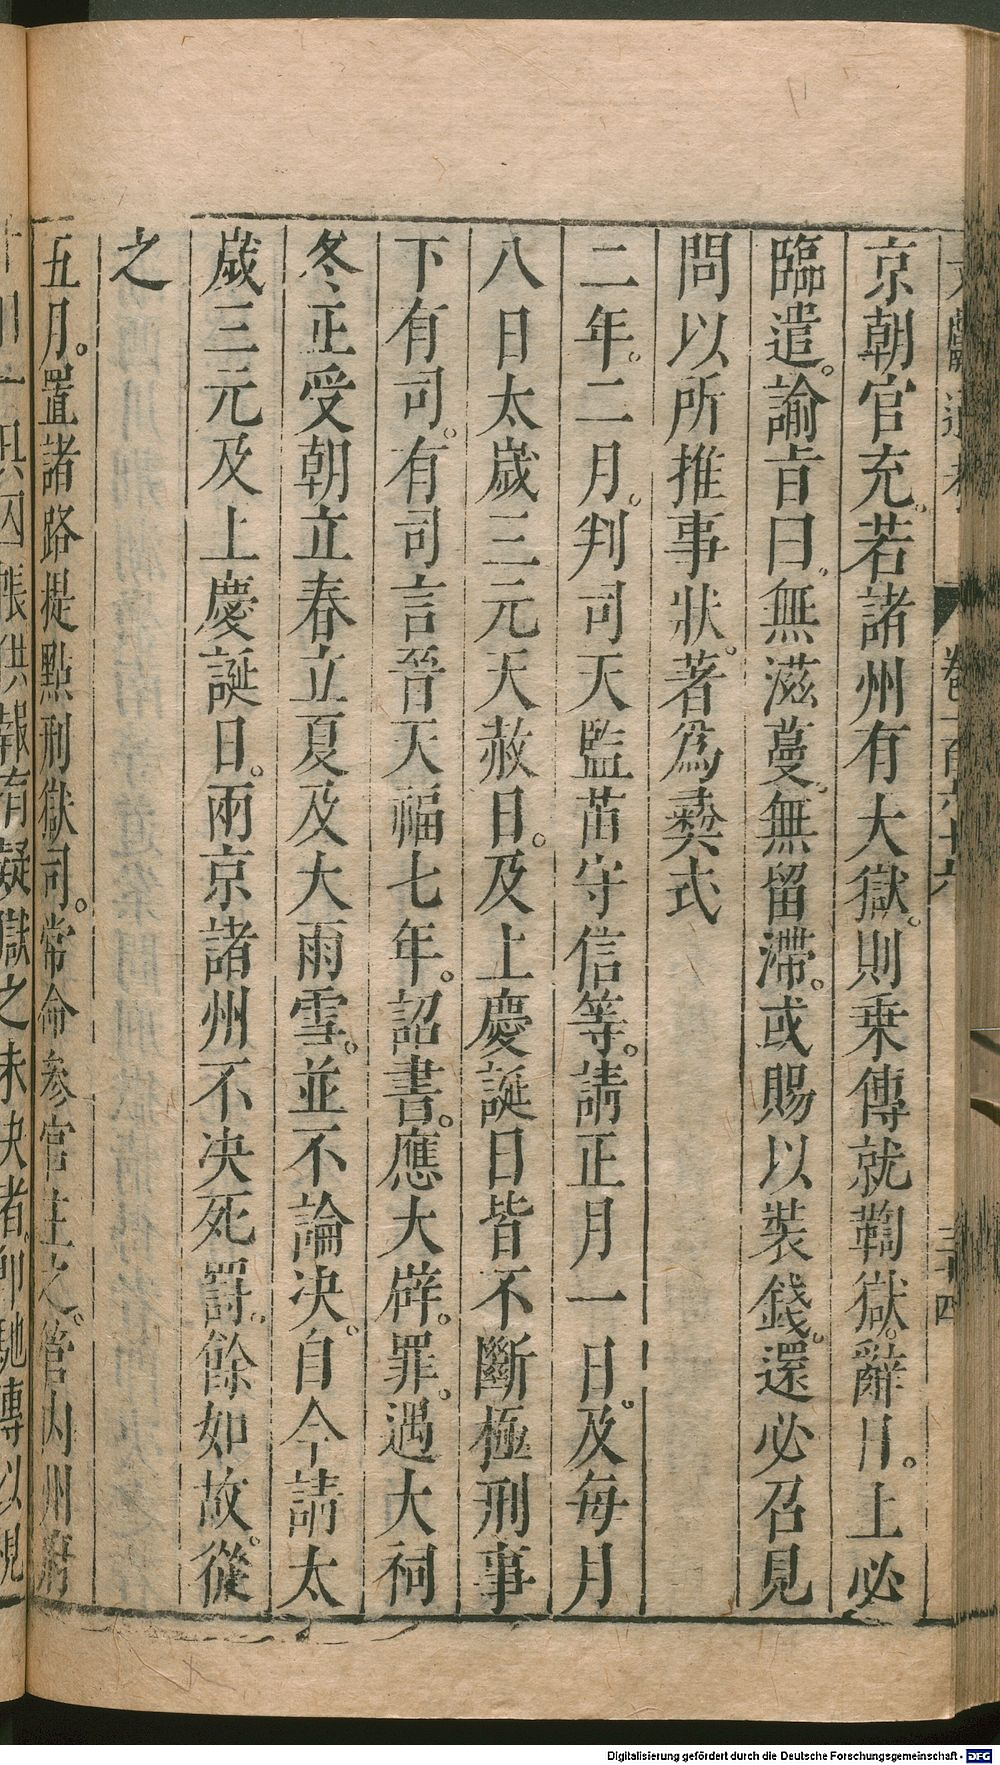 文獻通考 卷一百六十六 三十四
京朝官充。若諸州有大獄。則乗傳就鞫獄。辭日。上必
臨遣。諭旨曰。無滋蔓。無留滯。或賜以裝錢。還必召見
問以所推事狀。著爲彜式
二年。二月。判司天監苗守信等。請正月一日。及每月
八日太歲三元天赦日。及上慶誕日皆不斷極刑事
下有司。有司言晉天福七年。詔書。應大辟。罪。遇大祠
冬正受朝立春立夏及大雨雪。並不論决。自今請太
歲三元及上慶誕日。兩京諸州不决死罸。餘如故。從
之
五月。置諸路提點刑獄司。常命參官主之。管内州府
十日一具囚帳供報有疑獄之未决者。卽馳傳以視
Digitalisierung gefördert durch die Deutsche Forschungsgemeinschaft - DFG